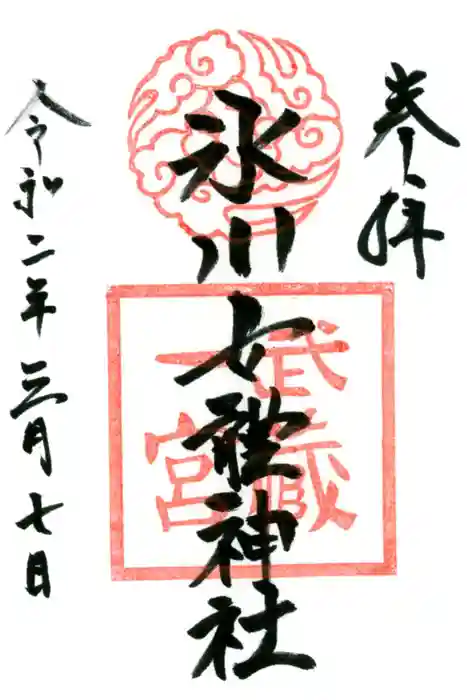 奉拝
氷川女體神社
武蔵
一宮
令和二年三月七日